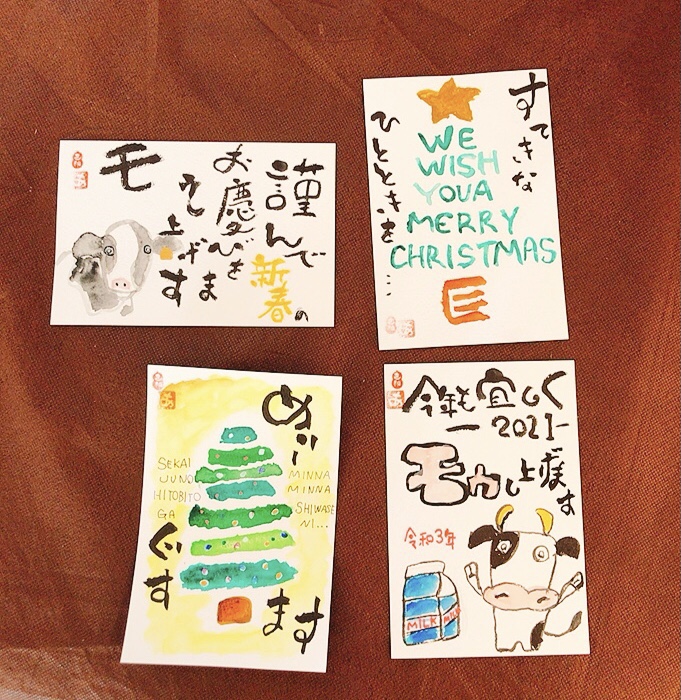 謹んで
新春の
お慶びを
モ
うし
上げま
す
すてきな
WE
WISH
YOUA
MERRY
CHRISTMAS
ひとときを…
めりー
くりす
ます
SEKAI
JUNO
HITOBITO
GA
MINNA
MINNA
SHIWASE
NI...
今年も宜しく
-2021-
モウし上げます
令和3年
MILK
MILK